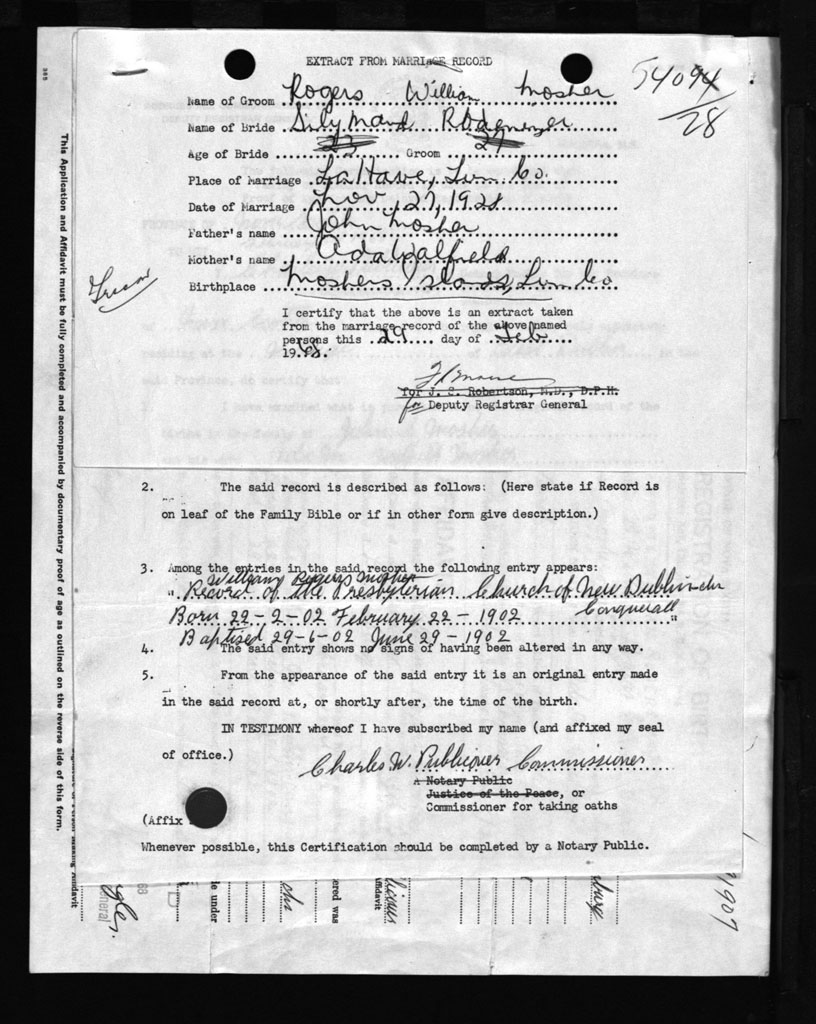 EXTRACT FROM MARRIAGE RECORD
54094/28
Name of Groom Rogers William Mosher
Name of Bride Lily Maud Rodenizer
Age of Bride 23 Groom 27
Place of Marriage LaHave, Lun Co.
Date of Marriage Nov 27, 1928
Father's name John Mosher
Mother's name Ada Walfield
Birthplace Moshers Islands, Lun Co
I certify that the above is an extract taken
from the marriage record of the above named
persons this 29 day of Feb
1968.
for J. C. Robertson, M.D., D.P.H.
for Deputy Registrar General
2. The said record is described as follows: (Here state if Record is
on leaf of the Family Bible or if in other form give description.)
3. Among the entries in the said record the following entry appears:
William Rogers Mosher
" Record of the Presbyterian Church of New Dublin
Conquerall
Born 22-2-02 February 22-1902 "
Baptised 29-6-02 June 29-1902
4. The said entry shows no signs of having been altered in any way.
5. From the appearance of the said entry it is an original entry made
in the said record at, or shortly after, the time of the birth.
IN TESTIMONY whereof I have subscribed my name (and affixed my seal
of office.)
Charles W. Publicover Commissioner
A Notary Public
Justice of the Peace, or
Commissioner for taking oaths
(Affix
Whenever possible, this Certification should be completed by a Notary Public.
This Application and Affidavit must be fully completed and accompanied by documentary proof of age as outlined on the reverse side of this form.